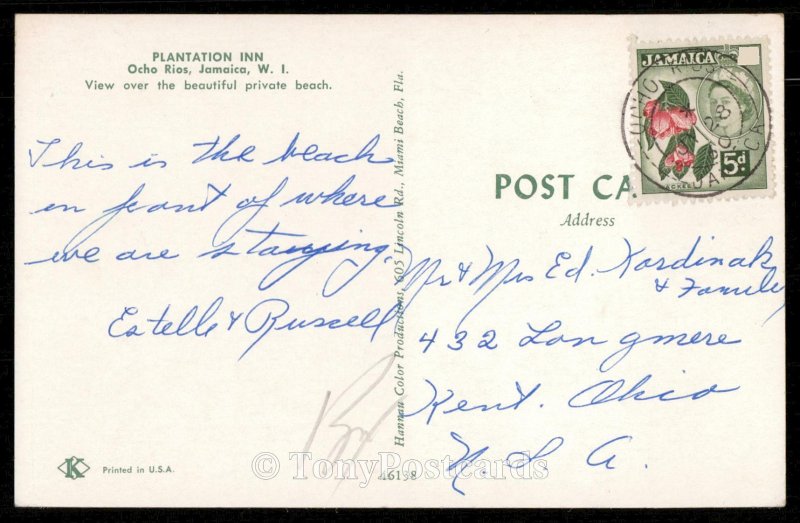 PLANTATION INN
Ocho Rios, Jamaica, W. I.
View over the beautiful private beach.
This is the beach
in front of where
we are staying.
Estelle & Russell
Hannau Color Productions, 605 Lincoln Rd., Miami Beach, Fla.
K
Printed in U.S.A.
46198
© TonyPostcards
JAMAICA
5d
ACKEE
POST CA
Address
Mr & Mrs Ed. Kardinak
& Family
432 Longmere
Kent. Ohio
U. S. A.